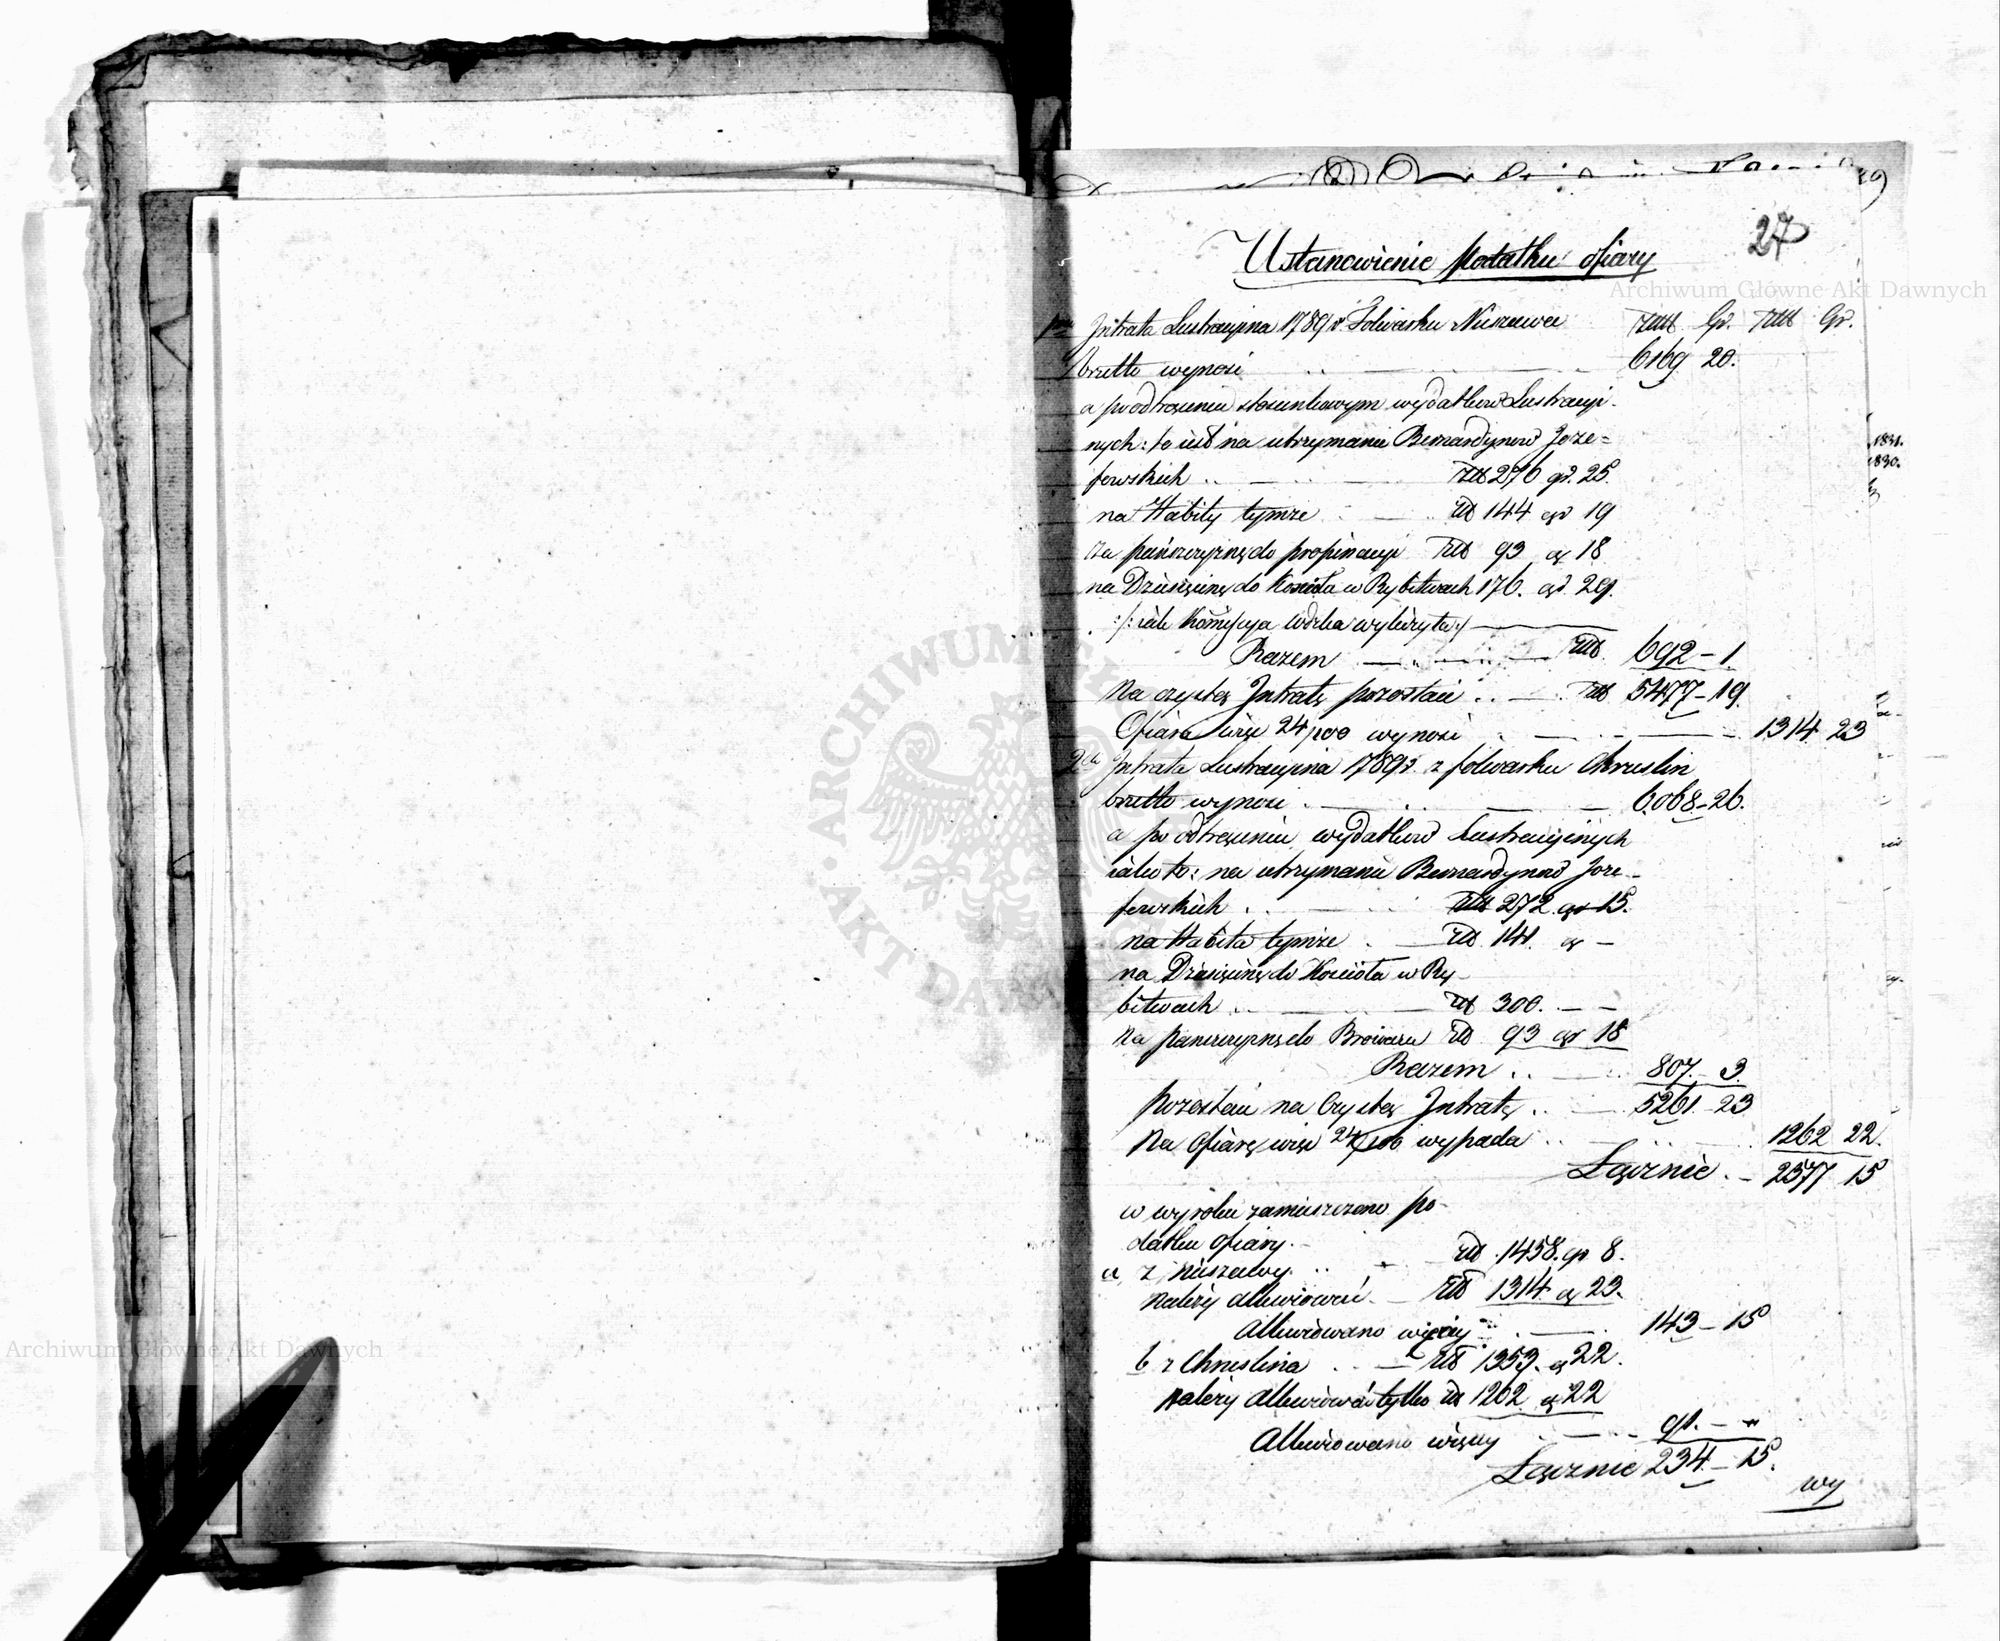 27
Ustanowienie podatku ofiary
Archiwum Główne Akt Dawnych
Intrata Lustracyina 1789 r Folwarku Niszawa Złt Gr. Złt Gr.
brutto wynosi 6169 20.
a po odtrąceniu stosunkowym wydatków Lustracyi-
nych: to iest na utrzymanie Bernardynow Joze=
fowskich .. Złt 276 gr. 25.
na Habity tymże Złt 144 gr 19
za pańszczyznę do propinacyi Złt 93 gr 18
na Dziesięcinę do Kosciola w Rybitwach 176. gr. 29.
:/: iak Kommisya
Razem Złt 692 - 1
Na czystą Intratę pozostaie .. Złt 5477 - 19.
Ofiara więc 24 pro wynosi 1314 23
2da Intrata Lustracyina 1789 r. z folwarku Chruslin
brutto wynosi 6068 - 26.
a po odtrąceniu wydatkow Lustracyinych
iako to: na utrzymanie Bernardynow Joze-
fowskich .. Złt 272 gr 15.
na Habita tymże Złt 141. gr -
na Dziesięcinę do Kosciola w Ry-
bitwach .. Złt 300. - -
na pańszczyznę do Browaru Złt 93 gr 18
Razem .. 807. - 3.
pozostaie na Czystą Intratę .. 5261 - 23
Na Ofiarę więc 24 pro wypada .. 1262 22.
Łącznie . - 2577 15
w wyroku zamieszczono po-
datku Ofiary. -
a, z Niszawy .. Złt 1458. gr 8.
należy Złt 1314 gr 23.
więcey 143 - 15
b z Chruslina .. Złt 1353. gr 22.
Należy tylko Złt 1262 gr 22
więcey 91. - "
Łącznie 234 - 15.
wy
Archiwum Główne Akt Dawnych
ARCHIWUM GŁÓWNE AKT DAWNYCH